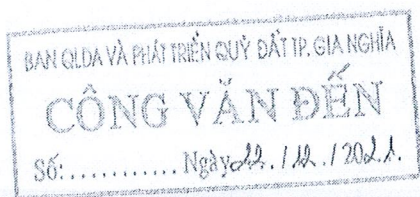 BAN QLDA VÀ PHÁT TRIỂN QUỸ ĐẤT TP. GIA NGHĨA
CÔNG VĂN ĐẾN
Số:............ Ngày 22. / 12. / 2021.